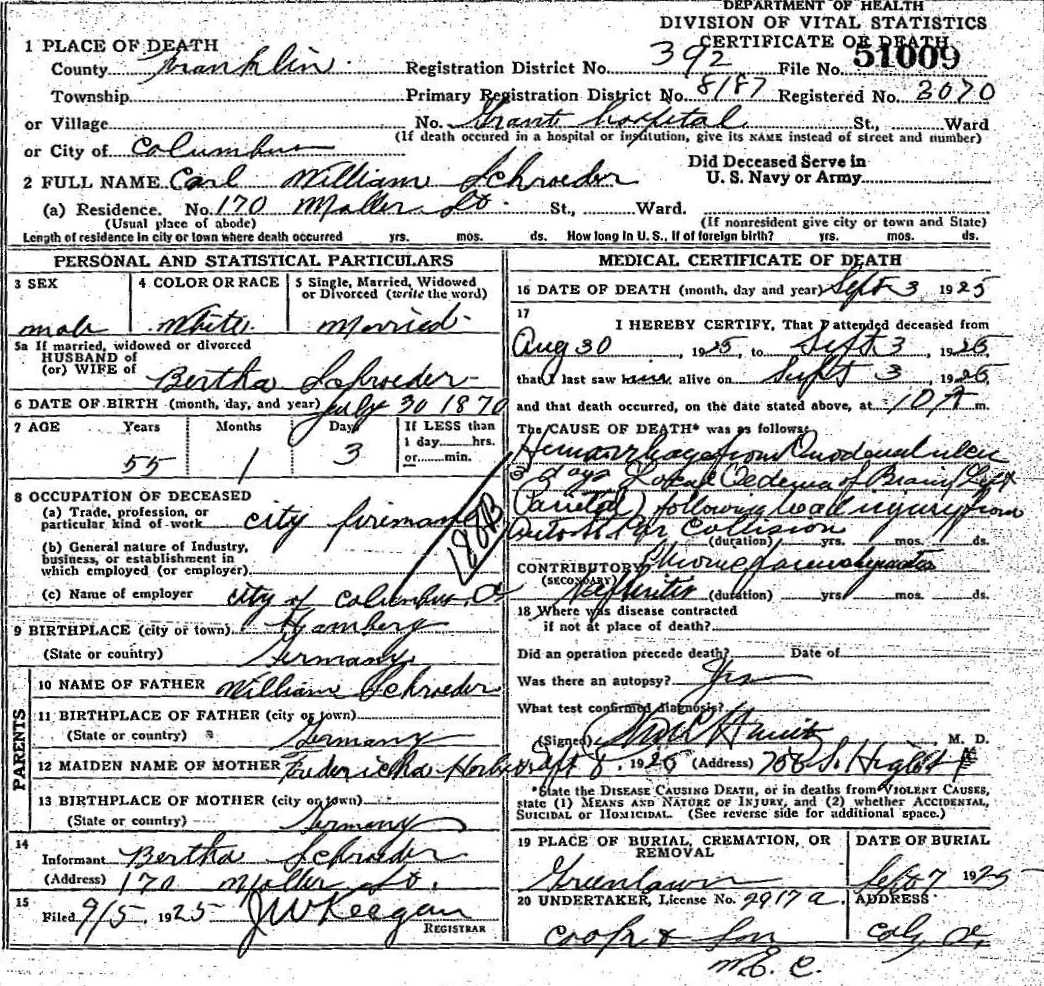 DEPARTMENT OF HEALTH
DIVISION OF VITAL STATISTICS
CERTIFICATE OF DEATH
1 PLACE OF DEATH
County Franklin Registration District No. 392 File No. 51009
Township Primary Registration District No. 8187 Registered No. 3070
or Village No. Grant Hospital St., Ward
(If death occured in a hospital or institution, give its NAME instead of street and number)
or City of Columbus
Did Deceased Serve in
U. S. Navy or Army
2 FULL NAME Carl William Schroeder
(a) Residence. No. 170 Moller St. St., Ward.
(Usual place of abode) (If nonresident give city or town and State)
Length of residence in city or town where death occurred yrs. mos. ds. How long in U. S., if of foreign birth? yrs. mos. ds.
PERSONAL AND STATISTICAL PARTICULARS
3 SEX
male
4 COLOR OR RACE
White
5 Single, Married, Widowed
or Divorced (write the word)
Married
5a If married, widowed or divorced
HUSBAND of
(or) WIFE of
Bertha Schroeder
6 DATE OF BIRTH (month, day, and year) July 30 1870
7 AGE Years Months Days If LESS than
1 day hrs.
or min.
55 1 3
8 OCCUPATION OF DECEASED
(a) Trade, profession, or
particular kind of work City fireman
(b) General nature of Industry,
business, or establishment in
which employed (or employer)
(c) Name of employer City of Columbus, O
188B
9 BIRTHPLACE (city or town) Hamberg
(State or country) Germany
PARENTS
10 NAME OF FATHER William Schroeder
11 BIRTHPLACE OF FATHER (city or town)
(State or country) Germany
12 MAIDEN NAME OF MOTHER Fredericka
13 BIRTHPLACE OF MOTHER (city or town)
(State or country) Germany
14
Informant Bertha Schroeder
(Address) 170 Moller St.
15
Filed 9/5, 1925 J W Keegan
REGISTRAR
MEDICAL CERTIFICATE OF DEATH
16 DATE OF DEATH (month, day and year) Sept 3 1925
17
I HEREBY CERTIFY, That I attended deceased from
Aug 30, 1925, to Sept 3, 1925,
that I last saw him alive on Sept 3, 1925
and that death occurred, on the date stated above, at 10 A m.
The CAUSE OF DEATH* was as follows:
Hemorrhage from Duodenal ulcer
3 days Oedema of Brain (Left
Parietal) following head injury from
Auto Collision
(duration) yrs. mos. ds.
CONTRIBUTORY Chronic Parenchymatous
(SECONDARY) Nephritis (duration) yrs mos. ds.
18 Where was disease contracted
if not at place of death?
Did an operation precede death? Date of
Was there an autopsy? Yes
What test confirmed diagnosis?
(Signed) M. D.
Sept 8, 1925 (Address) 758 S. High St
*State the DISEASE CAUSING DEATH, or in deaths from VIOLENT CAUSES,
state (1) MEANS AND NATURE OF INJURY, and (2) whether ACCIDENTAL,
SUICIDAL or HOMICIDAL. (See reverse side for additional space.)
19 PLACE OF BURIAL, CREMATION, OR
REMOVAL
Greenlawn
DATE OF BURIAL
Sept 7 1925
20 UNDERTAKER, License No. 2917a. ADDRESS
Cook & Son Col, O,
M.E.C.